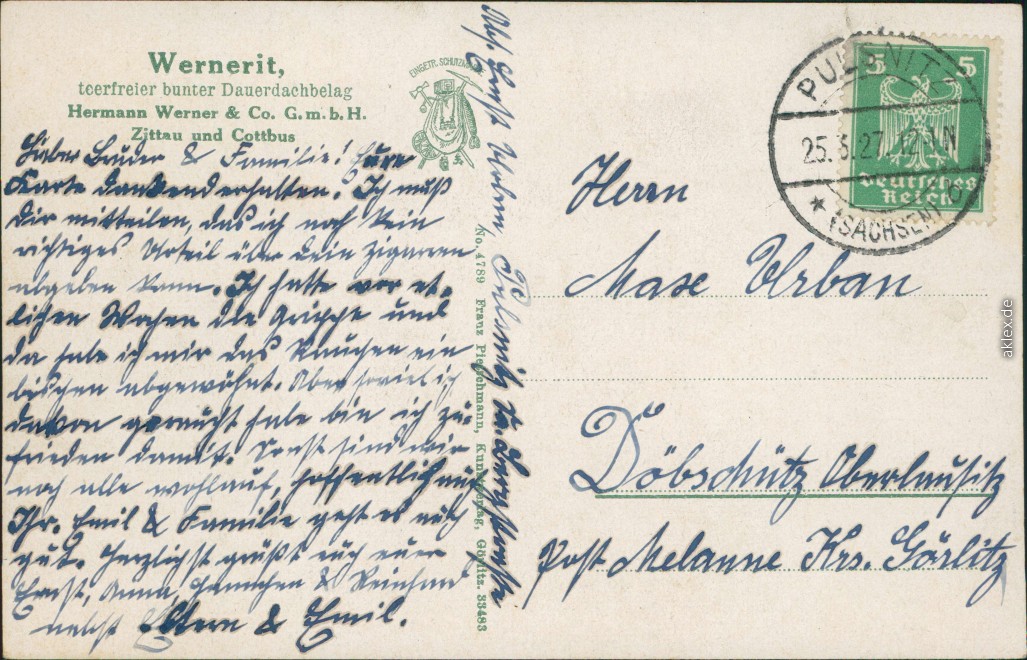 Wernerit,
teerfreier bunter Dauerdachbelag
Hermann Werner & Co. G.m.b.H.
Zittau und Cottbus
EINGETR. SCHUTZMARKE
Lieber Bruder & Familie! Eure
Karte dankend erhalten. Ich muß
Dir mitteilen, das ich noch kein
richtiges Urteil über Dein Zigarren
abgeben kann. Ich hatte vor et-
lichen Wochen die Grippe und
da habe ich mir das Rauchen ein
bischen abgewöhnt. Aber soviel ich
davon geraucht habe bin ich zu-
frieden damit. Sonst sind wir
noch alle wohlauf, hoffentlich auch
Ihr. Emil & Familie geht es auch
gut. Herzlichst grüßt euch euer
Ernst, Anna, Hannchen & Reinhard
nebst Eltern & Emil.
Abs. Ernst Urban, Pulsnitz Sa.
No. 4789 Franz Pietschmann, Kunstverlag, Görlitz. 33483
PULSNITZ
25.3.27. 12-1 N
* (SACHSEN)
5 5
Deutsches
Reich
Herrn
Maxe Urban
Döbschütz Oberlausitz
Post Melaune Krs. Görlitz
aklex.de